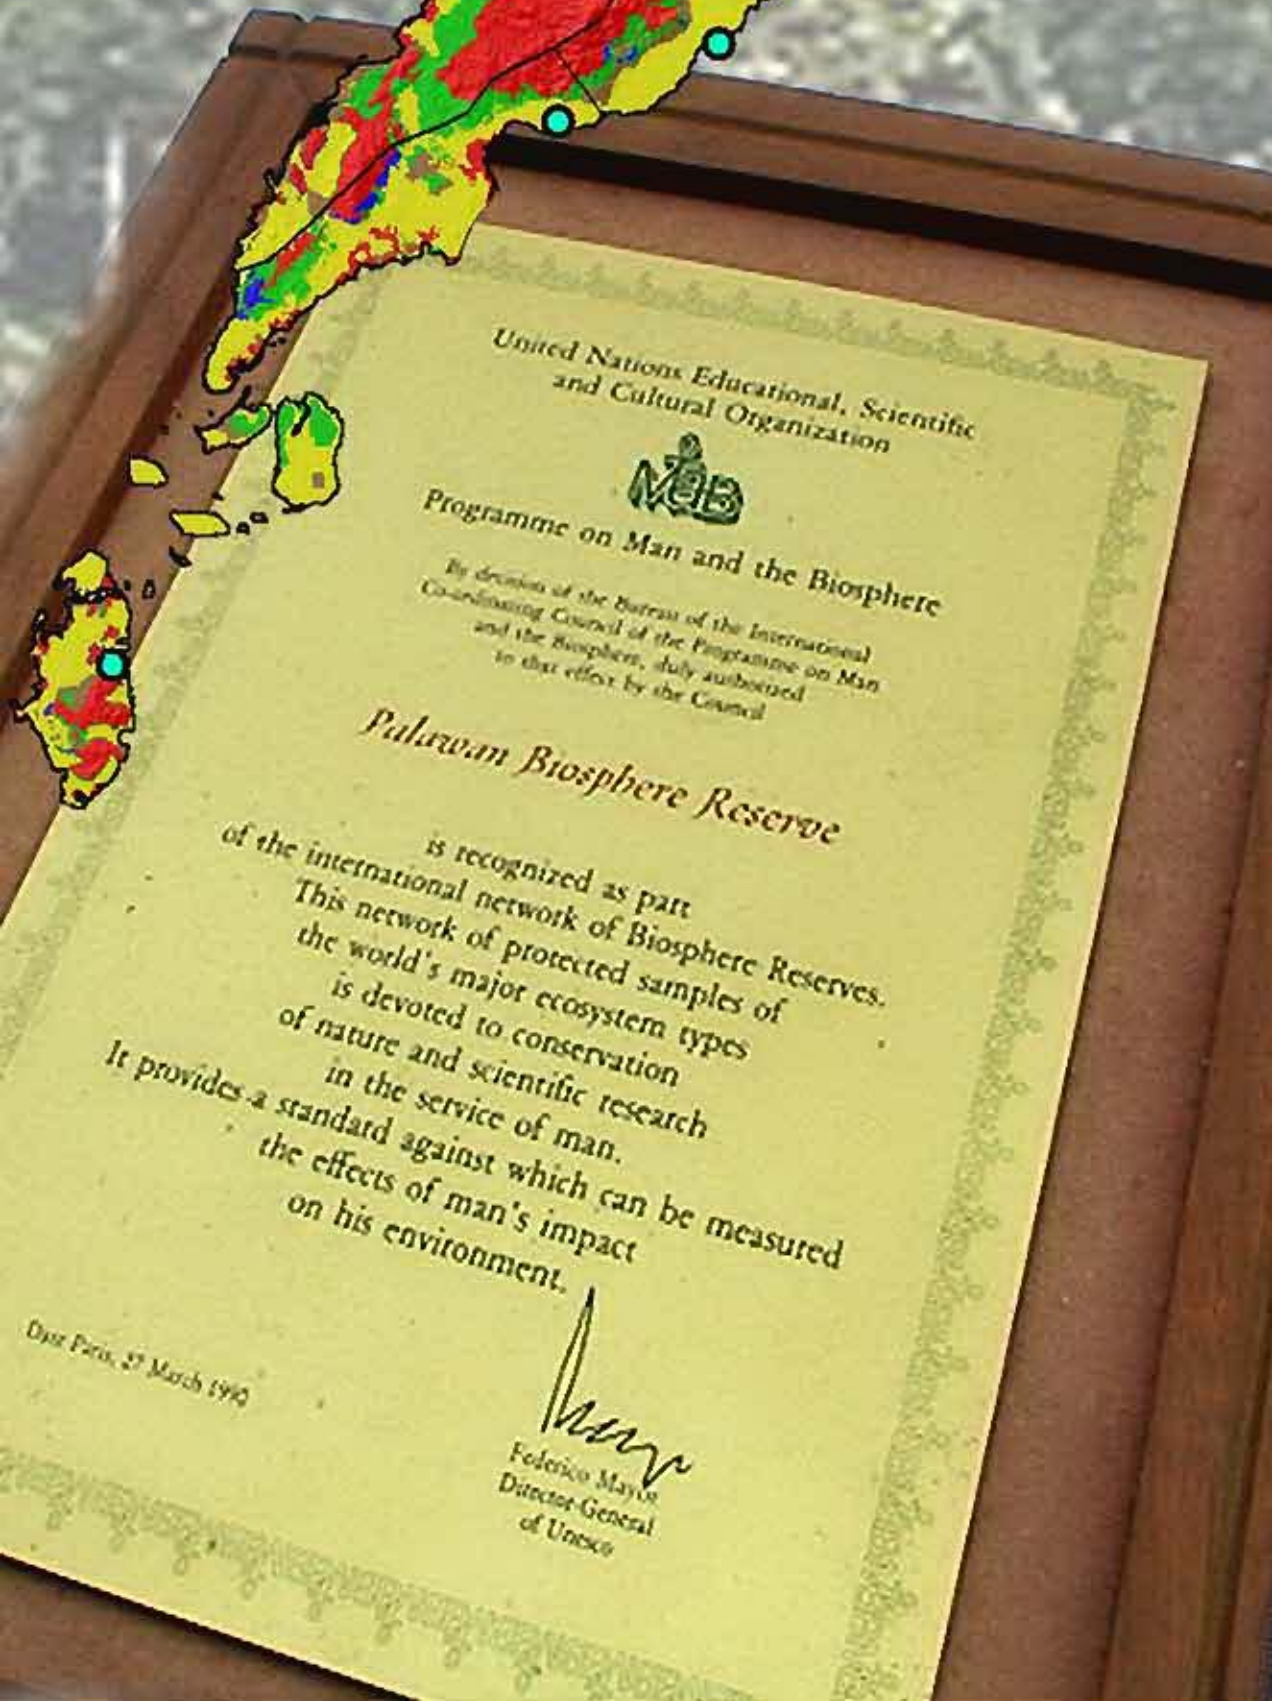 United Nations Educational, Scientific
and Cultural Organization
MAB
Programme on Man and the Biosphere
By decision of the Bureau of the International
Co-ordinating Council of the Programme on Man
and the Biosphere, duly authorized
to that effect by the Council
Palawan Biosphere Reserve
is recognized as part
of the international network of Biosphere Reserves.
This network of protected samples of
the world's major ecosystem types
is devoted to conservation
of nature and scientific research
in the service of man.
It provides a standard against which can be measured
the effects of man's impact
on his environment.
Date Paris, 27 March 1990
Federico Mayor
Director-General
of Unesco